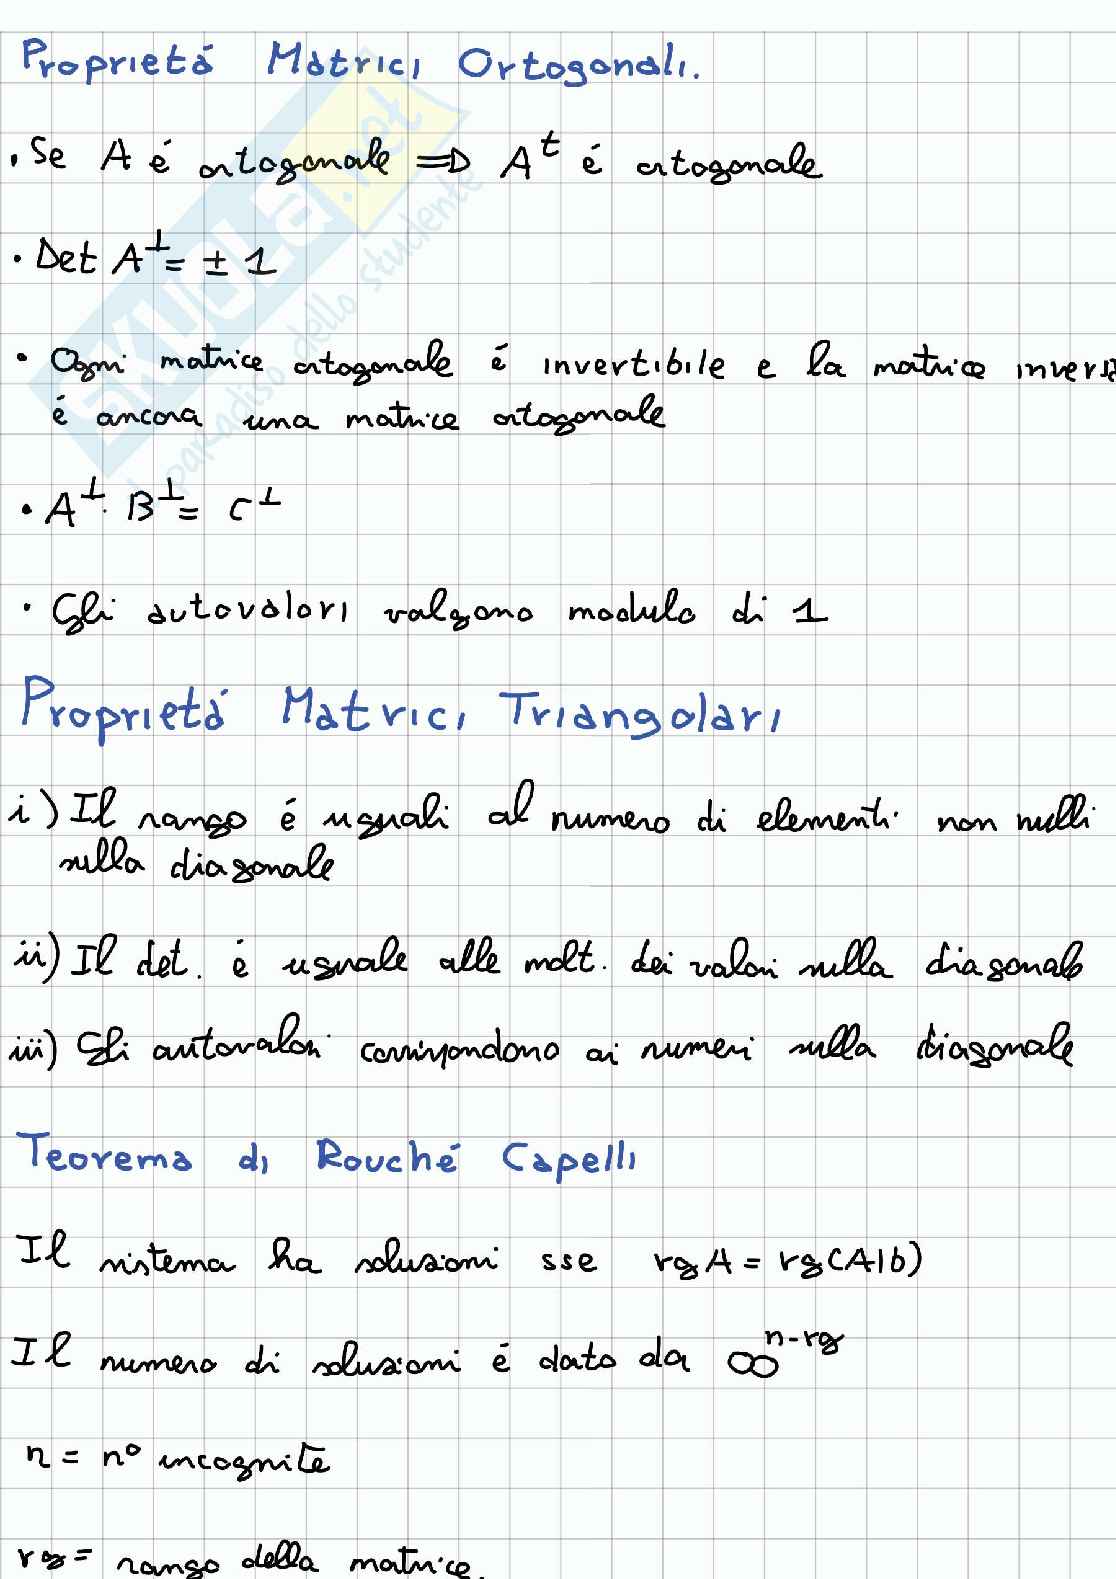 Proprietá Matrici Ortogonali.
• Se A é ortogonale => Aᵗ é ortogonale
• Det A^⊥ = ± 1
• Ogni matrice ortogonale é invertibile e la matrice inversa
é ancora una matrice ortogonale
• A^⊥ · B^⊥ = C^⊥
• Gli autovalori valgono modulo di 1
Proprietá Matrici Triangolari
i) Il rango é uguali al numero di elementi non nulli
sulla diagonale
ii) Il det. é uguale alle molt. dei valori sulla diagonale
iii) Gli autovalori corrispondono ai numeri sulla diagonale
Teorema di Rouché Capelli
Il sistema ha soluzioni sse rgA = rg(A|b)
Il numero di soluzioni é dato da ∞^(n-rg)
n = n° incognite
rg = rango della matrice.
SKUOLA.net
il paradiso dello studente